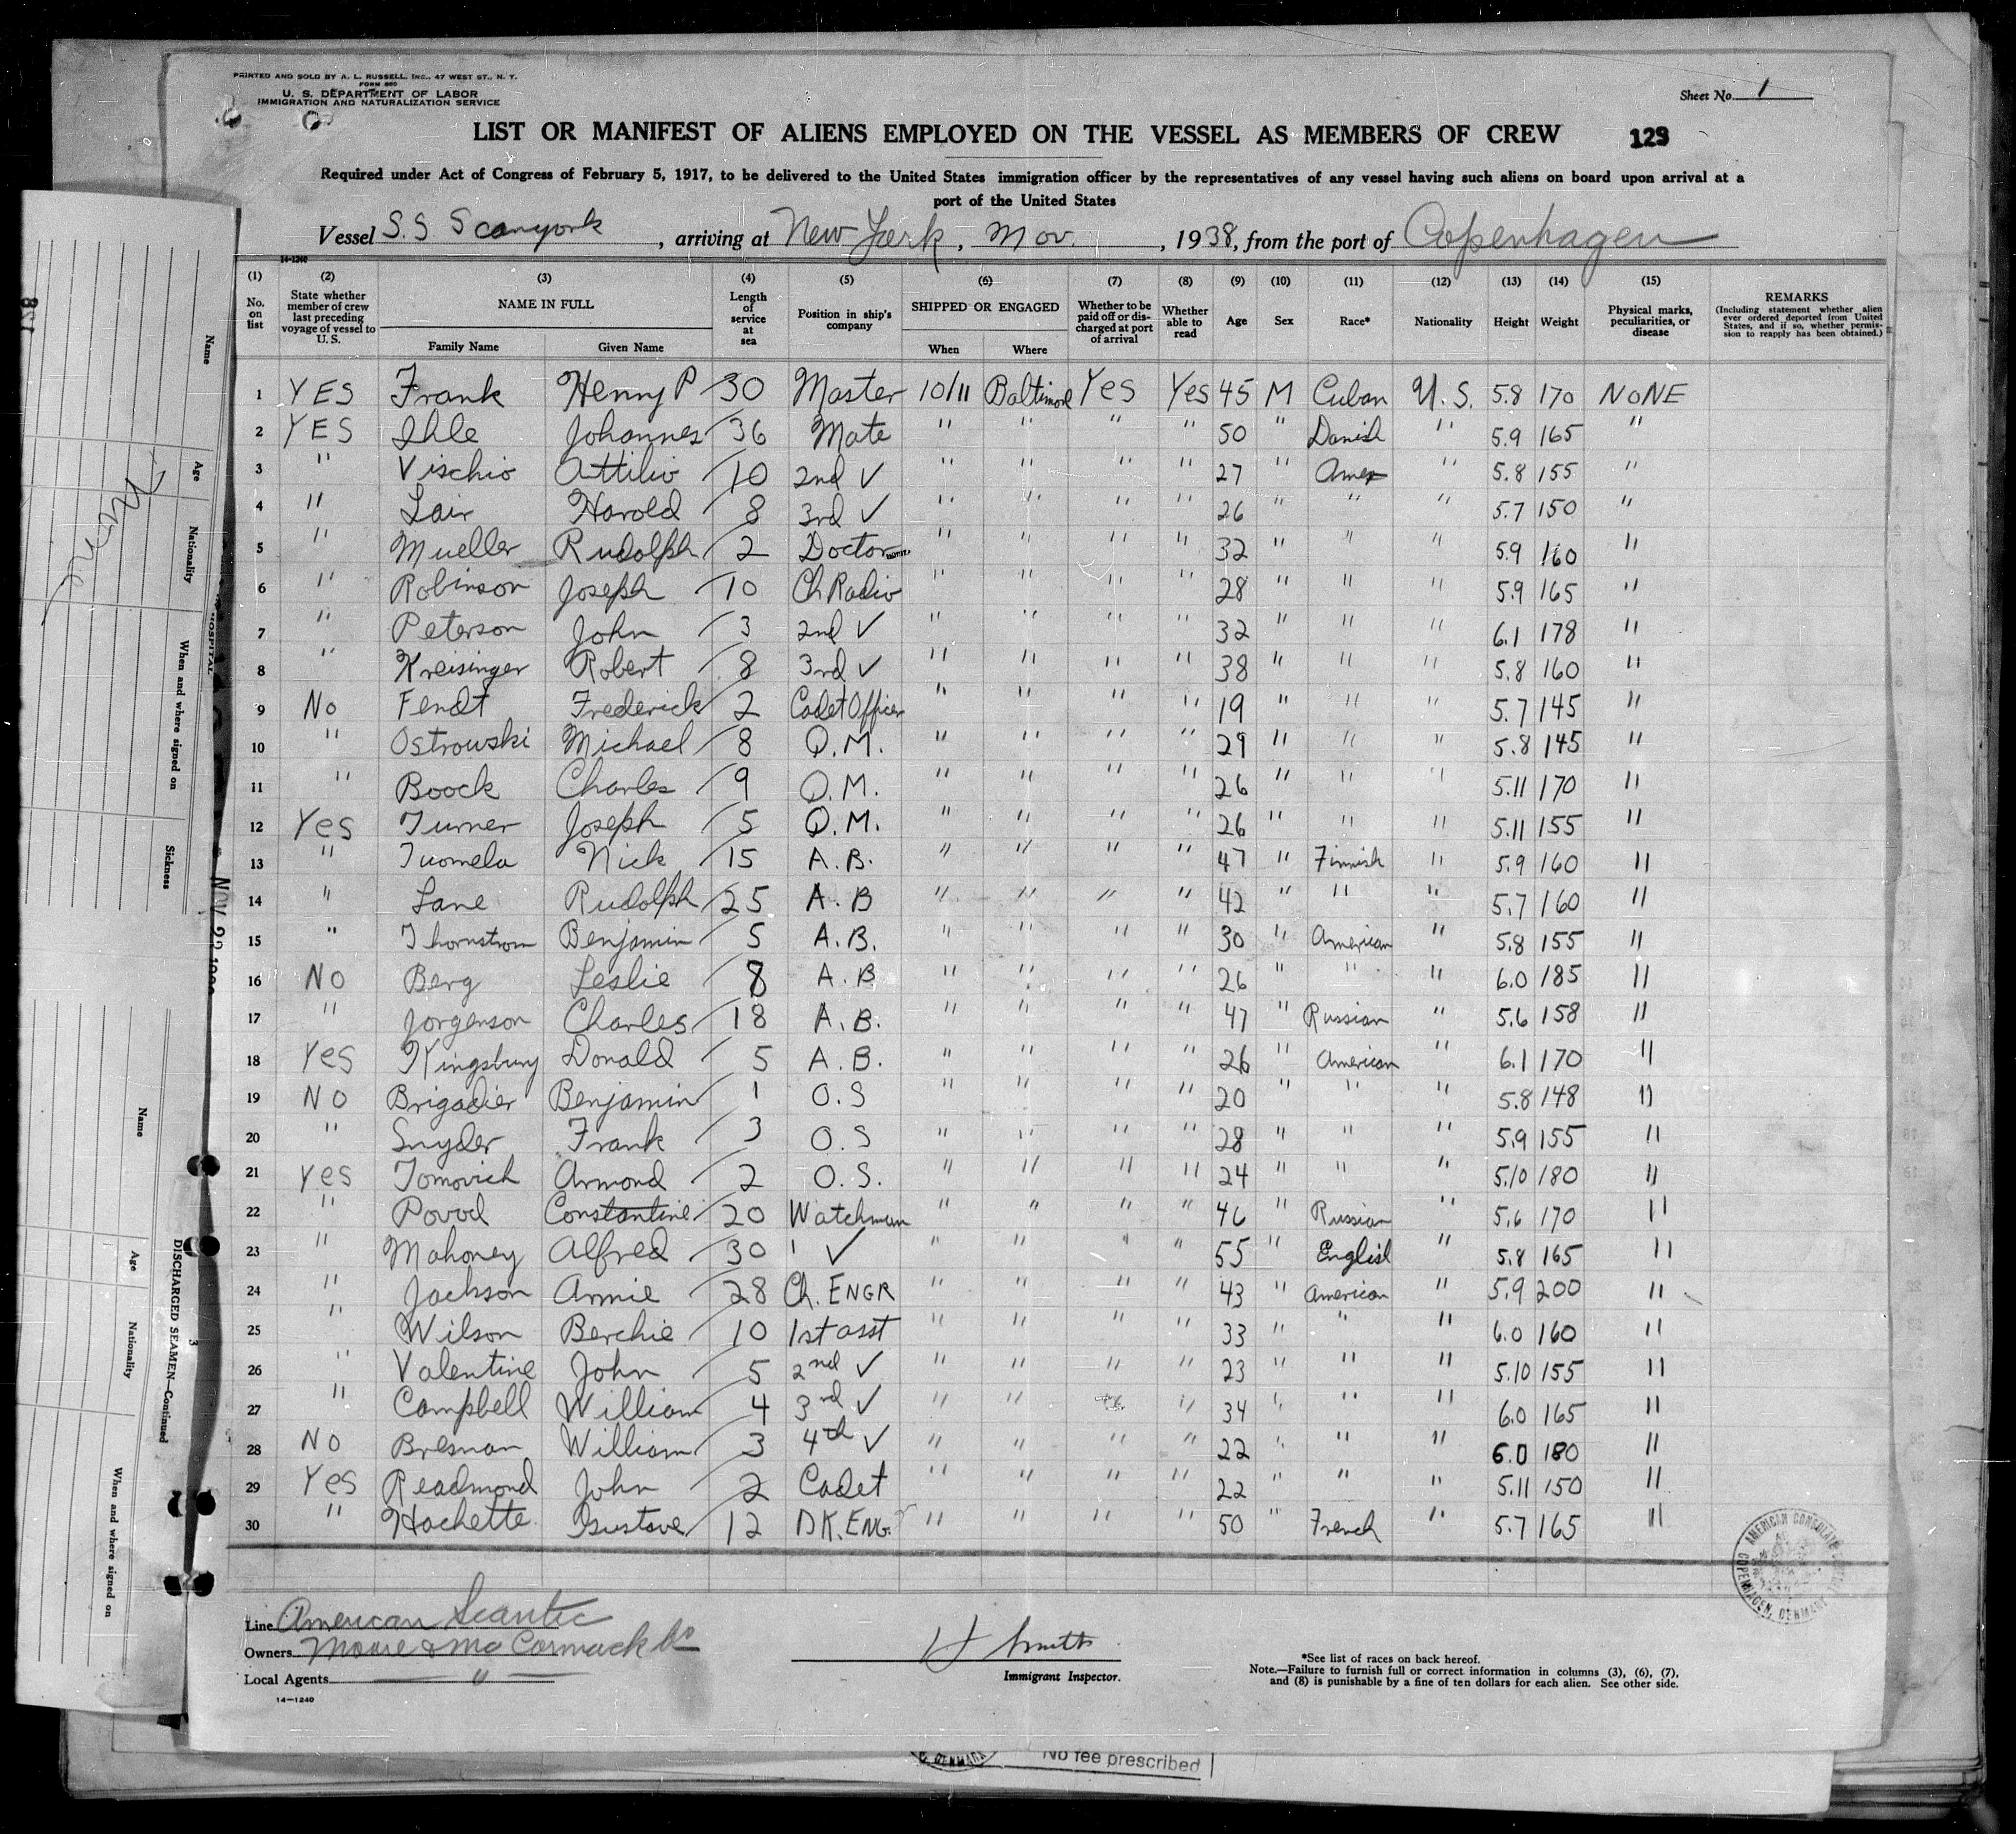 PRINTED AND SOLD BY A. L. RUSSELL, INC., 47 WEST ST., N. Y.
FORM 680
U. S. DEPARTMENT OF LABOR
IMMIGRATION AND NATURALIZATION SERVICE
Sheet No. 1
LIST OR MANIFEST OF ALIENS EMPLOYED ON THE VESSEL AS MEMBERS OF CREW 129
Required under Act of Congress of February 5, 1917, to be delivered to the United States immigration officer by the representatives of any vessel having such aliens on board upon arrival at a
port of the United States
Vessel S.S Scanyork, arriving at New York, Nov., 1938, from the port of Copenhagen
14-1240
(1) (2) (3) (4) (5) (6) (7) (8) (9) (10) (11) (12) (13) (14) (15)
No. on list State whether member of crew last preceding voyage of vessel to U. S. NAME IN FULL Family Name Given Name Length of service at sea Position in ship's company SHIPPED OR ENGAGED When Where Whether to be paid off or discharged at port of arrival Whether able to read Age Sex Race* Nationality Height Weight Physical marks, peculiarities, or disease REMARKS (Including statement whether alien ever ordered deported from United States, and if so, whether permission to reapply has been obtained.)
1 YES Frank Henry P 30 Master 10/11 Baltimore Yes Yes 45 M Cuban U.S. 5.8 170 NONE
2 YES Ihle Johannes 36 Mate " " " " 50 " Danish " 5.9 165 "
3 " Vischio Attilio 10 2nd ✓ " " " " 27 " Amer " 5.8 155 "
4 " Lair Harold 8 3rd ✓ " " " " 26 " " " 5.7 150 "
5 " Mueller Rudolph 2 Doctor " " " " 32 " " " 5.9 160 "
6 " Robinson Joseph 10 Ch Radio " " " " 28 " " " 5.9 165 "
7 " Peterson John 3 2nd ✓ " " " " 32 " " " 6.1 178 "
8 " Kreisinger Robert 8 3rd ✓ " " " " 38 " " " 5.8 160 "
9 No Fendt Frederick 2 Cadet Officer " " " " 19 " " " 5.7 145 "
10 " Ostrowski Michael 8 Q.M. " " " " 29 " " " 5.8 145 "
11 " Boock Charles 9 Q.M. " " " " 26 " " " 5.11 170 "
12 Yes Turner Joseph 5 Q.M. " " " " 26 " " " 5.11 155 "
13 " Tuomela Nick 15 A.B. " " " " 47 " Finnish " 5.9 160 "
14 " Lane Rudolph 25 A.B " " " " 42 " " " 5.7 160 "
15 " Thornstrom Benjamin 5 A.B. " " " " 30 " American " 5.8 155 "
16 No Berg Leslie 8 A.B " " " " 26 " " " 6.0 185 "
17 " Jorgenson Charles 18 A.B. " " " " 47 " Russian " 5.6 158 "
18 Yes Kingsbury Donald 5 A.B. " " " " 26 " American " 6.1 170 "
19 No Brigadier Benjamin 1 O.S " " " " 20 " " " 5.8 148 "
20 " Snyder Frank 3 O.S " " " " 28 " " " 5.9 155 "
21 Yes Tomovich Armond 2 O.S. " " " " 24 " " " 5.10 180 "
22 " Povod Constantine 20 Watchman " " " " 46 " Russian " 5.6 170 "
23 " Mahoney Alfred 30 ' ✓ " " " " 55 " English " 5.8 165 "
24 " Jackson Armie 28 Ch. ENGR " " " " 43 " American " 5.9 200 "
25 " Wilson Berchie 10 1st asst " " " " 33 " " " 6.0 160 "
26 " Valentine John 5 2nd ✓ " " " " 23 " " " 5.10 155 "
27 " Campbell William 4 3rd ✓ " " " " 34 " " " 6.0 165 "
28 No Bresnan William 3 4th ✓ " " " " 22 " " " 6.0 180 "
29 Yes Readmond John 2 Cadet " " " " 22 " " " 5.11 150 "
30 " Hochette Gustave 12 DK. ENG. " " " " 50 " French " 5.7 165 "
Line American Scantic
Owners Moore & Mc Cormack Co
Local Agents "
14—1240
H Smith
Immigrant Inspector.
*See list of races on back hereof.
Note.—Failure to furnish full or correct information in columns (3), (6), (7),
and (8) is punishable by a fine of ten dollars for each alien. See other side.
AMERICAN CONSULATE
COPENHAGEN, DENMARK
No fee prescribed
Name
Age
Nationality
When and where signed on
Sickness
HOSPITAL
NOV 22
Name
Age
Nationality
When and where signed on
3
DISCHARGED SEAMEN—Continued